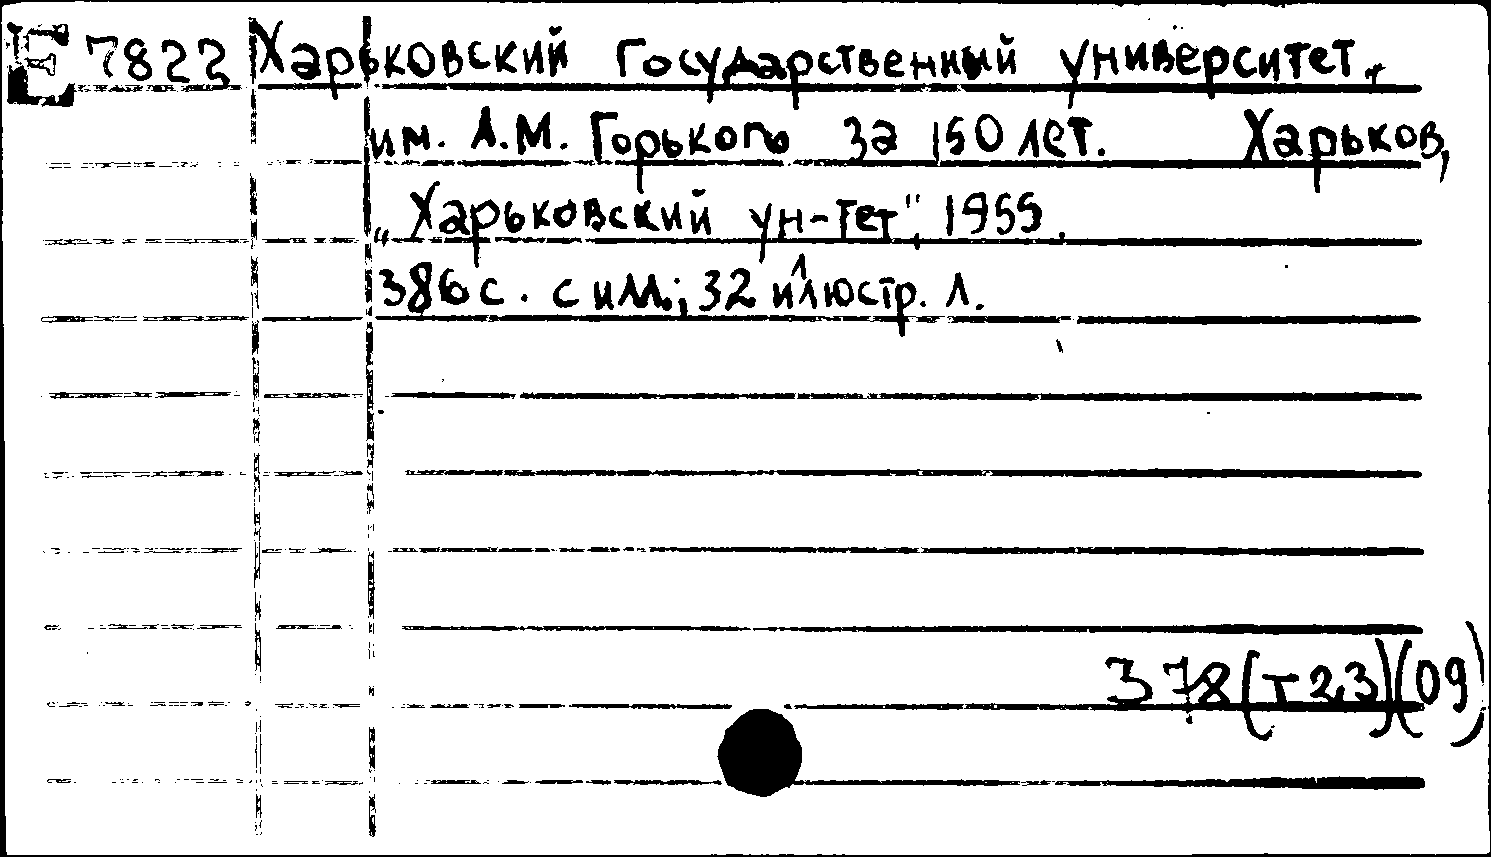 E 7822 Харьковский Государственный университет,
им. А.М. Горького за 150 лет. Харьков,
„Харьковский ун-тет", 1955.
386 с. с илл.; 32 иллюстр. л.
378(Т23)(09)